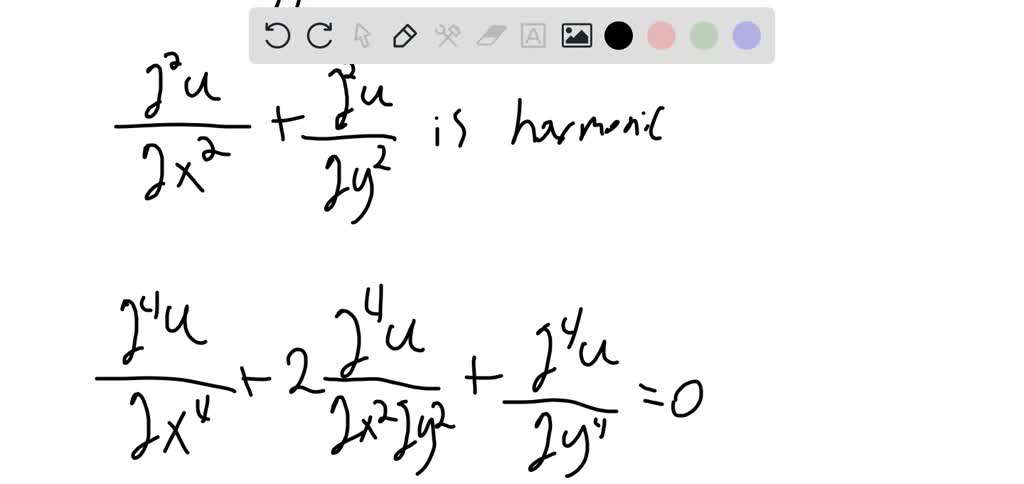 ∂²u/∂x² + ∂²u/∂y² is harmonic
∂⁴u/∂x⁴ + 2 ∂⁴u/∂x²∂y² + ∂⁴u/∂y⁴ = 0